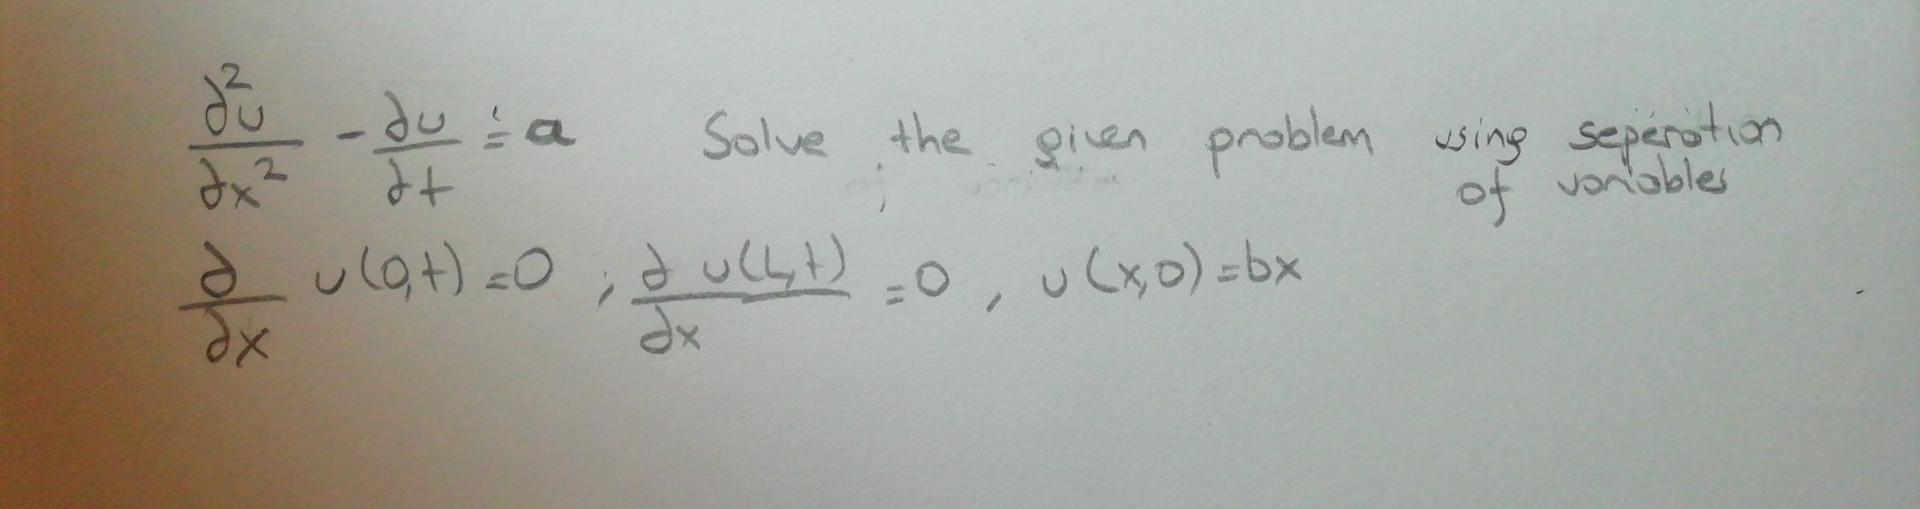 ∂²u/∂x² - ∂u/∂t = a Solve the given problem using seperation
of variables
∂/∂x u(0,t)=0 ; ∂u(L,t)/∂x =0 , u(x,0)=bx